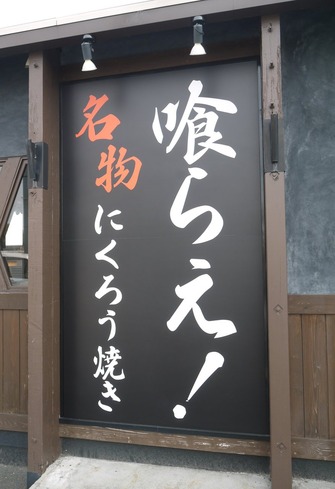 喰らえ!
名物にくろう焼き